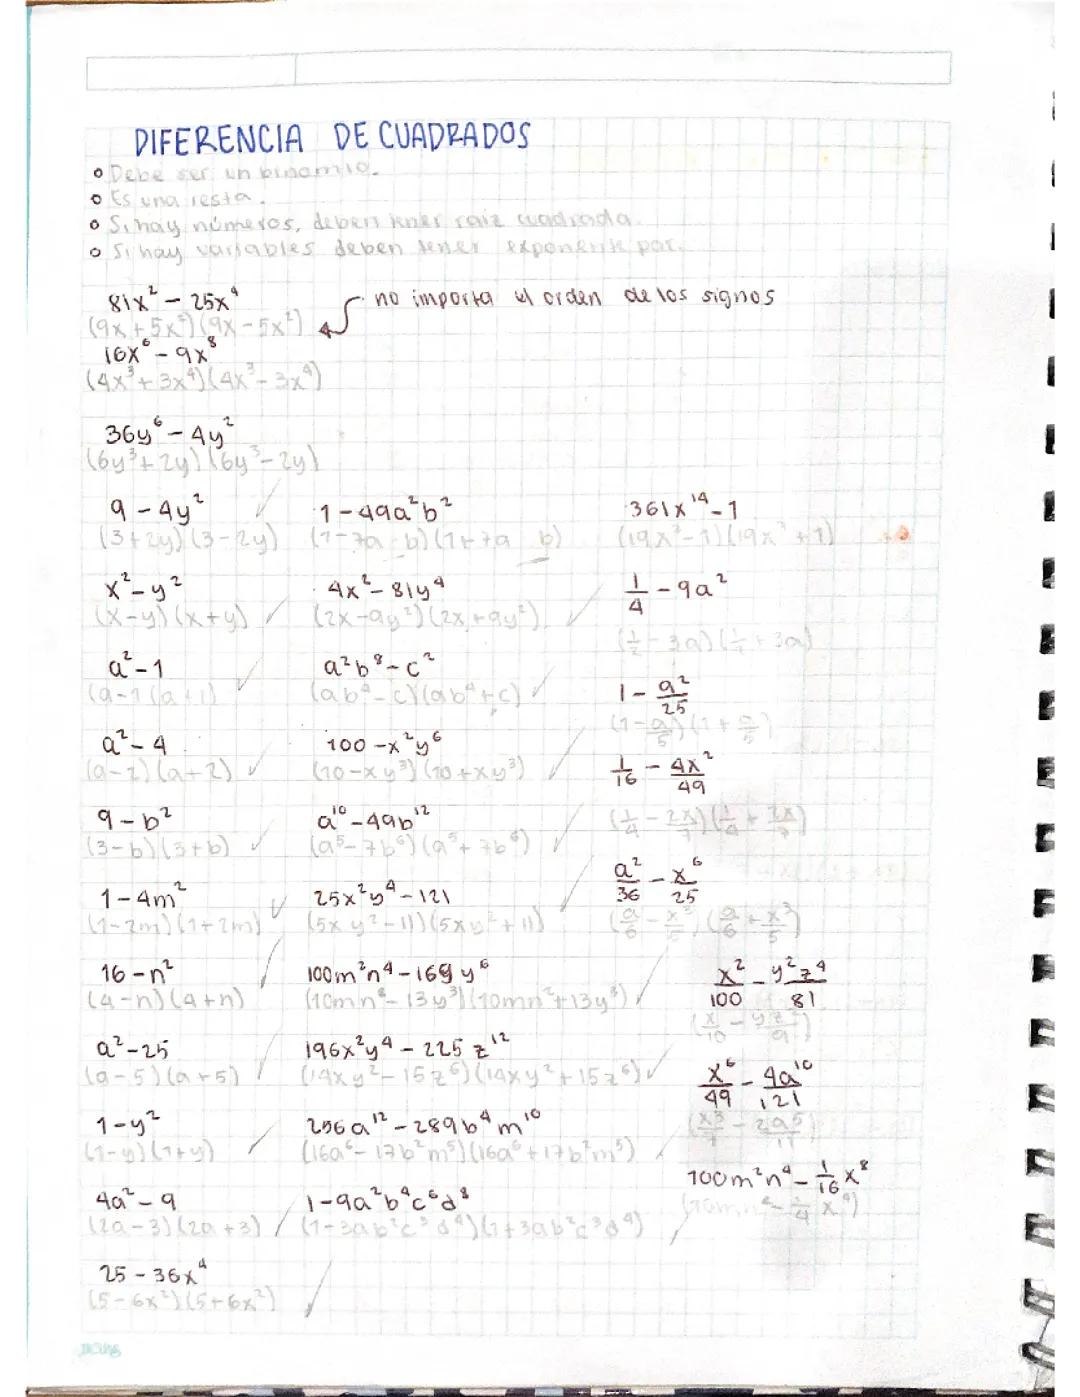 DIFERENCIA DE CUADRADOS
Debe ser un binomio.
Es una resta.
Si hay números, deben tener raiz cuadrada.
Si hay variables deben tener exponente par.
81x² - 25x⁴
no importa el orden de los signos
(9x + 5x²)(9x - 5x²)
16x⁶ - 9x⁸
(4x³ + 3x⁴)(4x³ - 3x⁴)
36y⁶ - 4y²
(6y³ + 2y)(6y³ - 2y)
9 - 4y²
(3+2y)(3-2y)
x² - y²
(x-y)(x+y)
a² - 1
(a-1(a+1)
a² - 4
(a-2)(a+2)
9 - b²
(3-b)(3+b)
1 - 4m²
(1-2m)(1+2m)
16 - n²
(4-n)(4+n)
a² - 25
(a-5)(a+5)
1 - y²
(1-y)(1+y)
4a² - 9
(2a-3)(2a+3)
25 - 36x⁴
(5-6x²)(5+6x²)
1 - 49a²b²
(1-7a b)(1+7a b)
4x² - 81y⁴
(2x-9y²)(2x+9y²)
a²b⁸ - c²
(ab⁴-c)(ab⁴+c)
100 - x²y⁶
(10-xy³)(10+xy³)
a¹⁰ - 49b¹²
(a⁵-7b⁶)(a⁵+7b⁶)
25x²y⁴ - 121
(5xy²-11)(5xy²+11)
100m²n⁴ - 169y⁶
(10mn²-13y³)(10mn²+13y³)
196x²y⁴ - 225z¹²
(14xy²-15z⁶)(14xy²+15z⁶)
256a¹² - 289b⁴m¹⁰
(16a⁶-17b²m⁵)(16a⁶+17b²m⁵)
1 - 9a²b⁴c⁶d⁸
(1-3ab²c³d⁴)(1+3ab²c³d⁴)
361x¹⁴ - 1
(19x⁷-1)(19x⁷+1)
1/4 - 9a²
(1/2 - 3a)(1/2 + 3a)
1 - a²/25
(1 - a/5)(1 + a/5)
1/16 - 4x²/49
(1/4 - 2x/7)(1/4 + 2x/7)
a²/36 - x⁶/25
(a/6 - x³/5)(a/6 + x³/5)
x²/100 - y²z⁴/81
(x/10 - yz²/9)
x⁶/49 - 4a¹⁰/121
(x³/7 - 2a⁵/11)
100m²n⁴ - 1/16 x⁸
(10mn² - 1/4 x⁴)